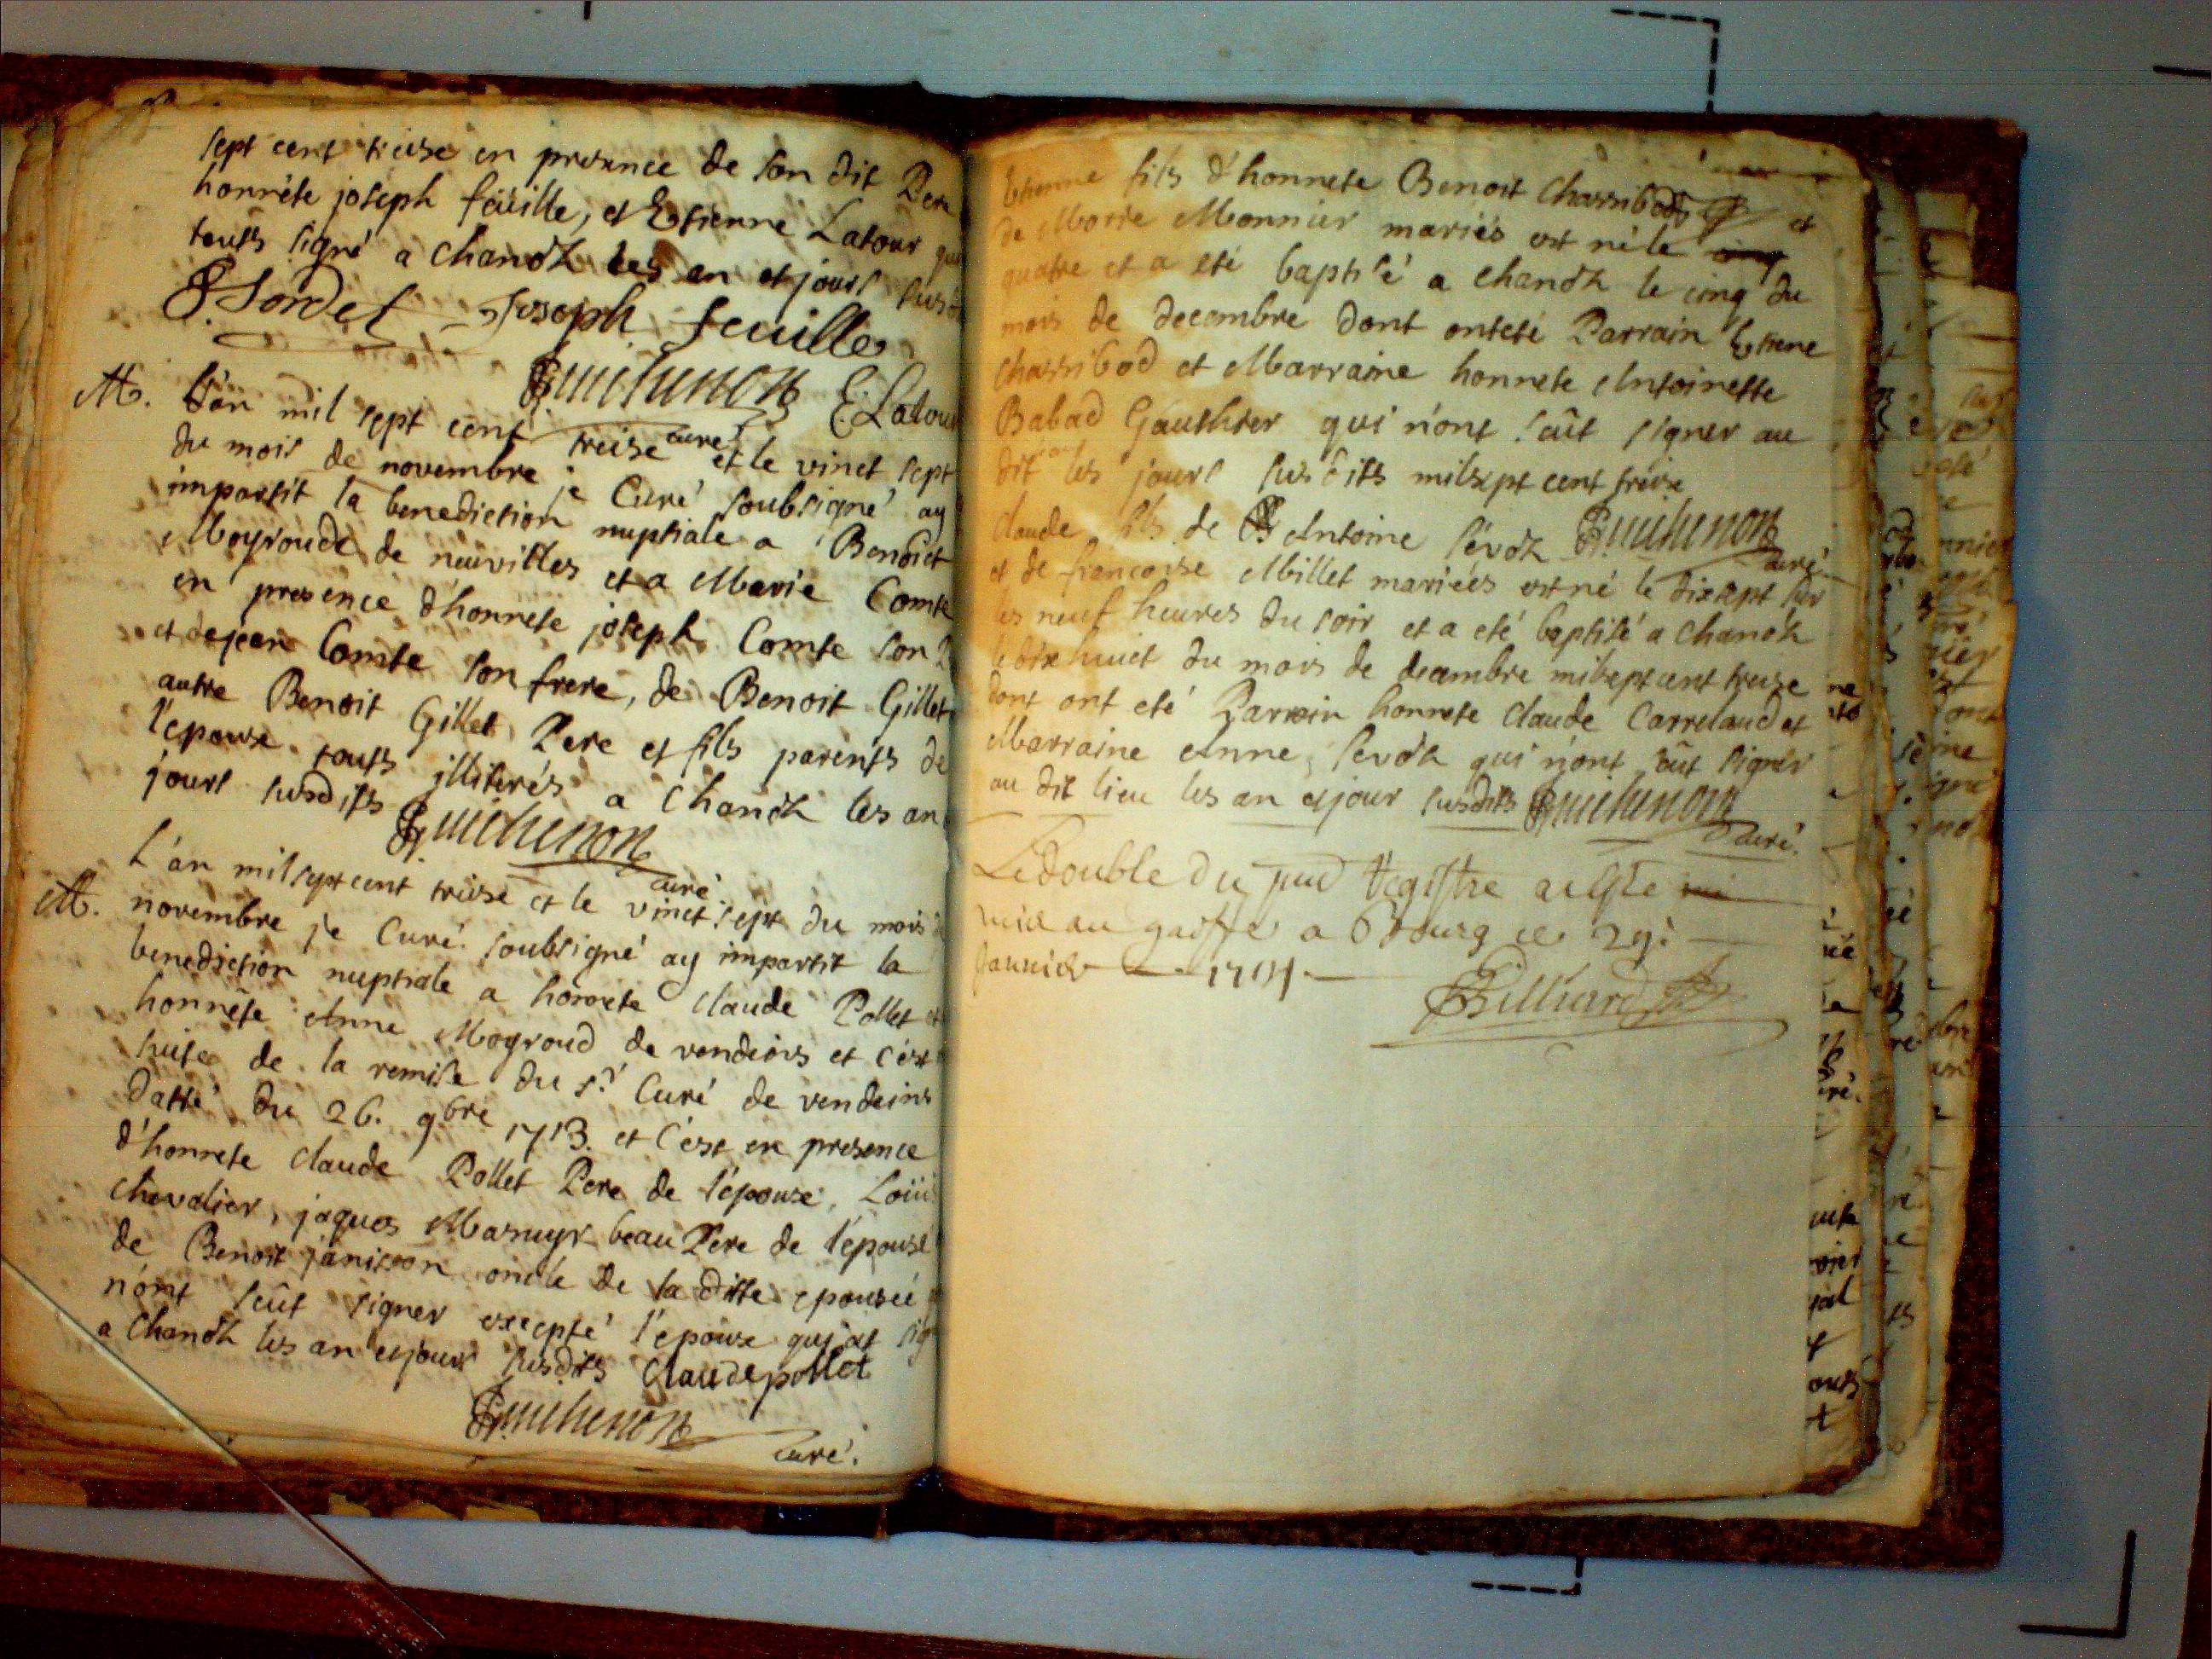 sept cent treise en presence de son dit Pere
honnéte joseph feüille, et Etienne Latour
touts signé a chanoz les an et jours
J. Sordet Joseph feuille
Guichenon E. Latour
curé
M. L'an mil sept cent treise et le vinct sept
du mois de novembre je Curé soubsigné ay
impartit la benediction nuptiale a Benoict
Moyroude de neuvilles et a Marie Comte
en presence d'honnete joseph Comte son
et de jean Comte son frere, de Benoit Gillet
autre Benoit Gillet Pere et fils parents de
l'epouse touts jlliterés a Chanoz les an
jours susdits Guichenon
curé
L'an mil sept cent treise et le vinct sept du mois
M. novembre je Curé soubsigné ay impartit la
benediction nuptiale a honnete Claude Pollet
honnéte Anne Moyroud de vendeins et c'est
suite de la remise du sr Curé de vendeins
datté du 26. 9bre 1713. et c'est en presence
d'honnete Claude Pollet Pere de l'epoux,
chevalier, jaques Masuyr beau Pere de l'epouse
de Benoit janisson oncle de la ditte epousée
n'ont seût signer excepté l'epoux qui at
a Chanoz les an et jours susdits Claude pollet
Guichenon
curé.
Etienne fils d'honnete Benoit Charribod et
de Marie Monnier mariés est né le cinq
quatre et a eté baptisé a chanoz le cinq du
mois de decembre dont ont eté Parrain Etiene
Charribod et Marraine honnete Antoinette
Babad Gauthier qui n'ont sçût signer au
dit les jours susdits mil sept cent treise
Guichenon
curé
Claude fils de Antoine sevoz
et de francoise Millet mariéés est né le dixsept sur
les neuf heures du soir et a eté baptisé a chanoz
le dix huict du mois de decembre mil sept cent treise
dont ont eté Parrain honnete Claude Carrelaud et
Marraine Anne sevoz qui n'ont sçût signer
au dit lieu les an et jour susdits Guichenon
curé.
Le double du pnt Registre a esté
mis au greffe a Bourg ce 29:
Januier 1714
Billiard